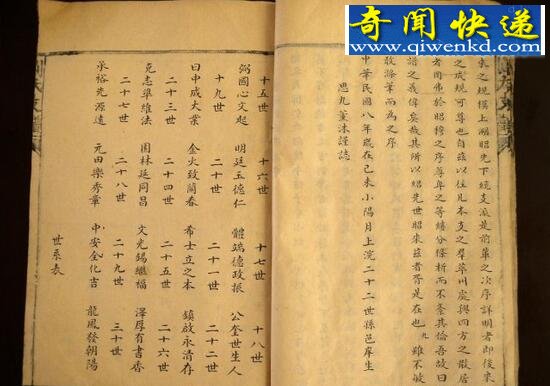 奇闻快递
www.qiwenkd.com
之規模上溯昭先下 支派是前輩之次序詳明者即後來
之成規可尊也自茲以往凡本支之群萃川處與四方之散居
者罔弗於昭穆之序尊卑之等縷分條析而不紊其倫吾故曰
譜之義偉矣哉其所以紹先世昭來茲者胥是在也 九 雖不敏
敢滌筆而為之序
中華民國八年歲在己未小陽月上浣二十二世孫邑庠生
思九薰沐謹誌
十五世 十六世 十七世 十八世
弼國心文起 明廷玉德仁 體端德政振 公奎世生人
十九世 二十世 二十一世 二十二世
曰中成大業 金火致蘭春 希士立之本 鎮啟永清存
二十三世 二十四世 二十五世 二十六世
克志準維法 園林廷同昌 文光錫繼福 澤厚有書香
二十七世 二十八世 二十九世 三十世
承裕先源遠 元田樂秀章 中安全化吉 龍鳳發朝陽
世系表